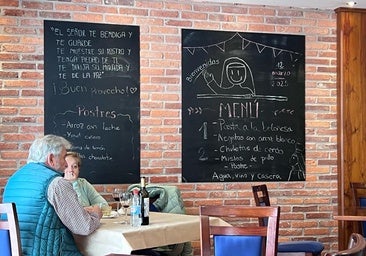 "EL SEÑOR TE BENDIGA Y TE
GUARDE
TE MUESTRE SU ROSTRO Y
TENGA PIEDAD DE TI
TE DIRIJA SU MIRADA Y
TE DE LA PAZ"
¡Buen Provecho!
Postres
- Arroz con leche
- Yogur
de limón
de chocolate
Bienvenidos
12
MARZO
2025
MENÚ
1º Pasta a la boloñesa
2º
- Chuletas de cerdo
- Muslos de pollo
- Postres -
Agua, vino y casera